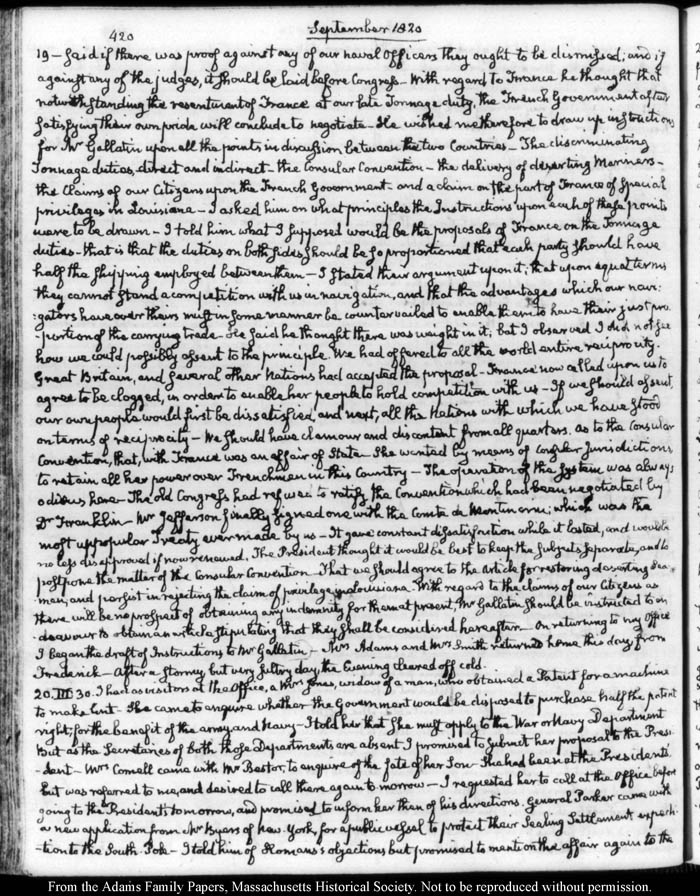 420
September 1820
19 - Said if there was proof against any of our naval Officers they ought to be dismissed; and if
against any of the judges, it should be laid before Congress - With regard to France he thought that
notwithstanding the resentment of France at our late Tonnage duty, the French Government after
satisfying their own pride will conclude to negotiate - He wished me therefore to draw up instructions
for Mr Gallatin upon all the points in discussion between the two Countries - The discriminating
Tonnage duties, direct and indirect - the Consular Convention - the delivery of deserting Mariners -
the Claims of our Citizens upon the French Government - and a claim on the part of France of special
privileges in Louisiana - I asked him on what principles the Instructions upon each of these points
were to be drawn - I told him what I supposed would be the proposals of France on the Tonnage
duties - that is that the duties on both sides should be so proportioned that each party should have
half the shipping employed between them - I stated their argument upon it; that upon equal terms
they cannot stand a competition with us in navigation, and that the advantages which our navi:
:gators have over theirs must in some manner be countervailed to enable them to have their just pro
-portion of the carrying trade - He said he thought there was weight in it; but I observed I did not see
how we could possibly assent to the principle. We had offered to all the world entire reciprocity.
Great Britain, and several other Nations had accepted the proposal - France now called upon us to
agree to be clogged, in order to enable her people to hold competition with us - If we should assent,
our own people would first be dissatisfied, and next, all the Nations with which we have stood
on terms of reciprocity - We should have clamour and discontent from all quarters. as to the Consular
Convention, that, with France was an affair of State - She wanted by means of Consular Jurisdictions,
to retain all her power over Frenchmen in this Country - The operation of the system was always
odious here - The old Congress had refused to ratify the Convention which had been negotiated by
Dr Franklin - Mr Jefferson finally signed one with the Comte de Montmorin; which was the
most unpopular Treaty ever made by us - It gave constant dissatisfaction while it lasted, and would be
no less disapproved if now renewed. The President thought it would be best to keep the subjects separate, and to
postpone the matter of the Consular Convention - That we should agree to the Article for restoring deserting Sea-
men, and persist in rejecting the claim of privilege in Louisiana. With regard to the claims of our Citizens as
there will be no prospect of obtaining any indemnity for them at present, Mr Gallatin should be instructed to en
deavour to obtain an article stipulating that they shall be considered hereafter - On returning to my Office
I began the draft of Instructions to Mr Gallatin - Mrs Adams and Mrs Smith returned home this day from
Frederick - After a stormy but very sultry day, the Evening cleared off cold.
20. III. 30. I had as visitors at the Office, a Mrs Jones, widow of a man, who obtained a Patent for a machine
to make lint - She came to enquire whether the Government would be disposed to purchase half the patent
right, for the benefit of the army and Navy - I told her that she must apply to the War or Navy Department
But as the Secretaries of both those Departments are absent I promised to submit her proposal to the Presi
-dent - Mrs Cornell came with Mr Bestor, to enquire of the fate of her Son - She had been at the Presidents
but was referred to me, and desired to call there again to-morrow - I requested her to call at the Office before
going to the Presidents tomorrow, and promised to inform her then of his directions. General Parker came with
a new application from Mr Byers of New-York, for a public vessel to protect their Sealing Settlement expedi-
-tion to the South Pole - I told him of Homans's objections but promised to mention the affair again to the
From the Adams Family Papers, Massachusetts Historical Society. Not to be reproduced without permission.